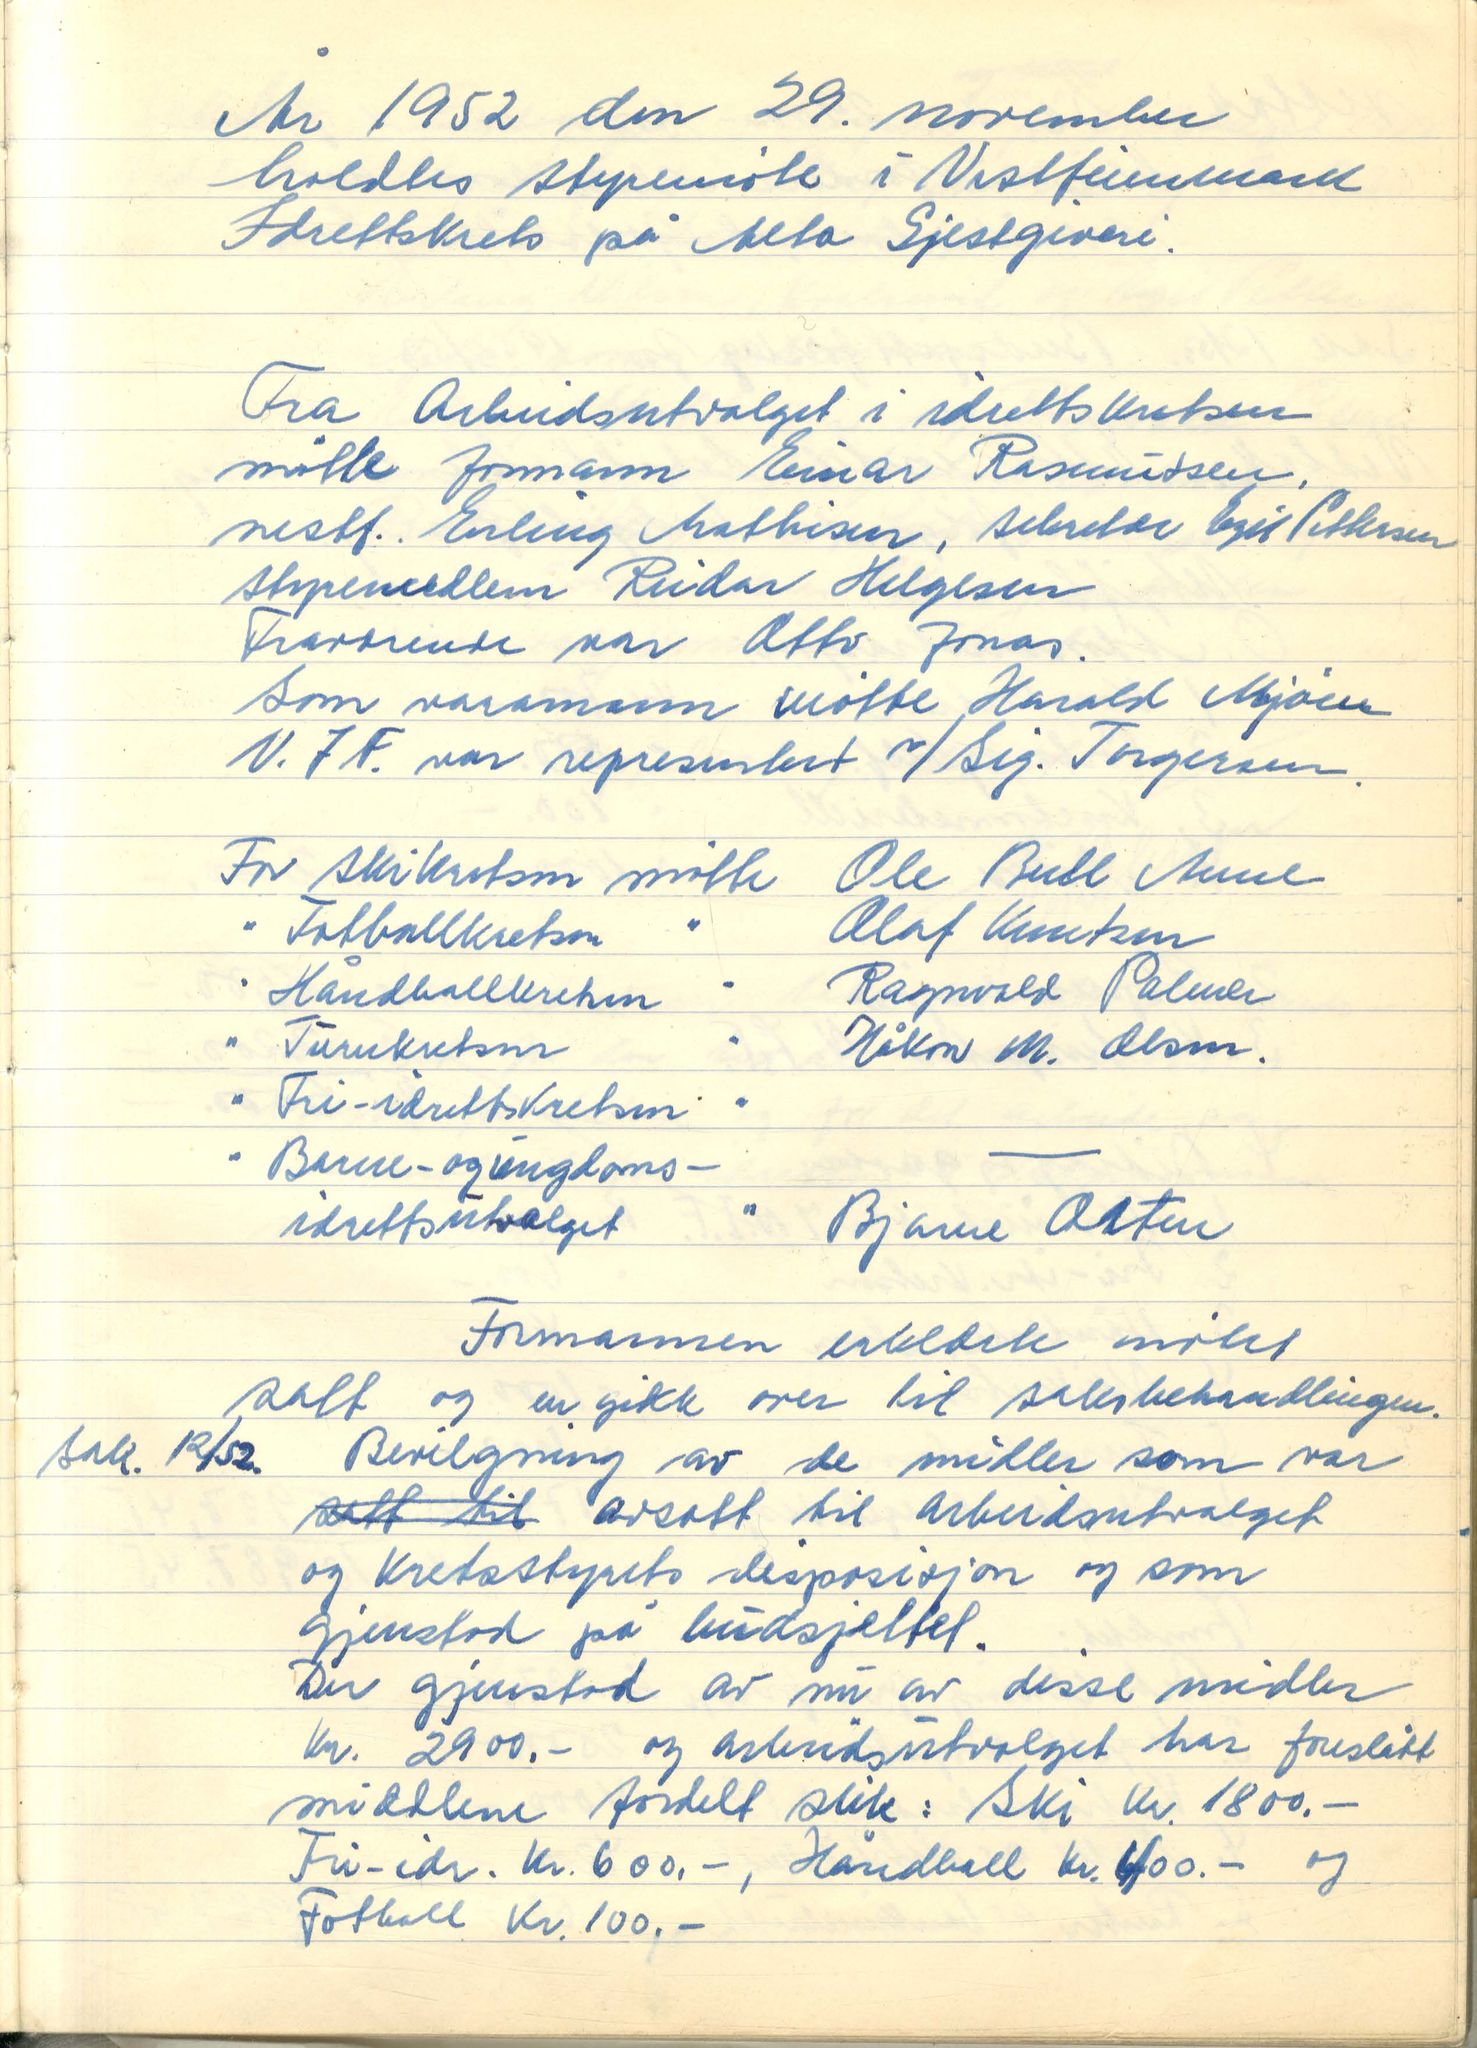 År 1952 den 29. november
holdtes styremöte i Vestfinnmark
Idrettskrets på Alta Gjestgiveri.
Fra Arbeidsutvalget i idrettskretsen
mötte formann Einar Rasmussen,
nestf. Erling Mathisen, sekretær Egil Pettersen
styremedlem Reidar Helgesen
Fraværende var Otto Jonas.
Som varamann mötte Harald Mjöen
V.I.F. var representert v/ Sig. Torgersen.
For Skikretsen mötte Ole Bull
" Fotballkretsen " Olaf Knutsen
" Håndballkretsen " Ragnvald Palmer
" Turnkretsen " Håkon M. Olsen.
" Fri-idrettskretsen "
" Barne- og ungdoms- —
idrettsutvalget " Bjarne Osten
Formannen erklærte mötet
satt og en gikk over til saksbehandlingen.
Sak. 12/52. Bevilgning av de midler som var
satt til avsatt til arbeidsutvalget
og kretsstyrets disposisjon og som
gjenstod på budsjettet.
Der gjenstod av nu av disse midler
kr. 2900.- og arbeidsutvalget har foreslått
midlene fordelt slik: Ski kr. 1800.-
Fri-idr. kr. 600.-, Håndball kr. 400.- og
Fotball kr. 100.-